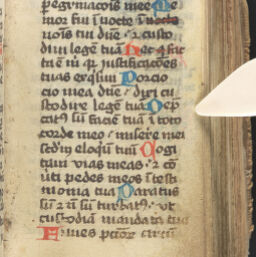 peregrinacõis mee Me
mor fui i nocte
nois tui dñe ⁊ custo
diui legẽ tuã Hec
t̃ ẽ m̃ q̃ justificac̃oes
tuas exq̃siui Porcio
mea dñe dixi cu
stodire legẽ tuã Dep̃
cat⁹ sũ faciẽ tuã i toto
corde meo misere mei
scd̃m eloq̃iũ tuũ Cogi
taui vias meas ⁊ cõ
uti pedes meos i testi
monia tua Paratus
sũ ⁊ ñ sũ turbat⁹ vt
custodiã mandata tua
Funes pctõr circũ